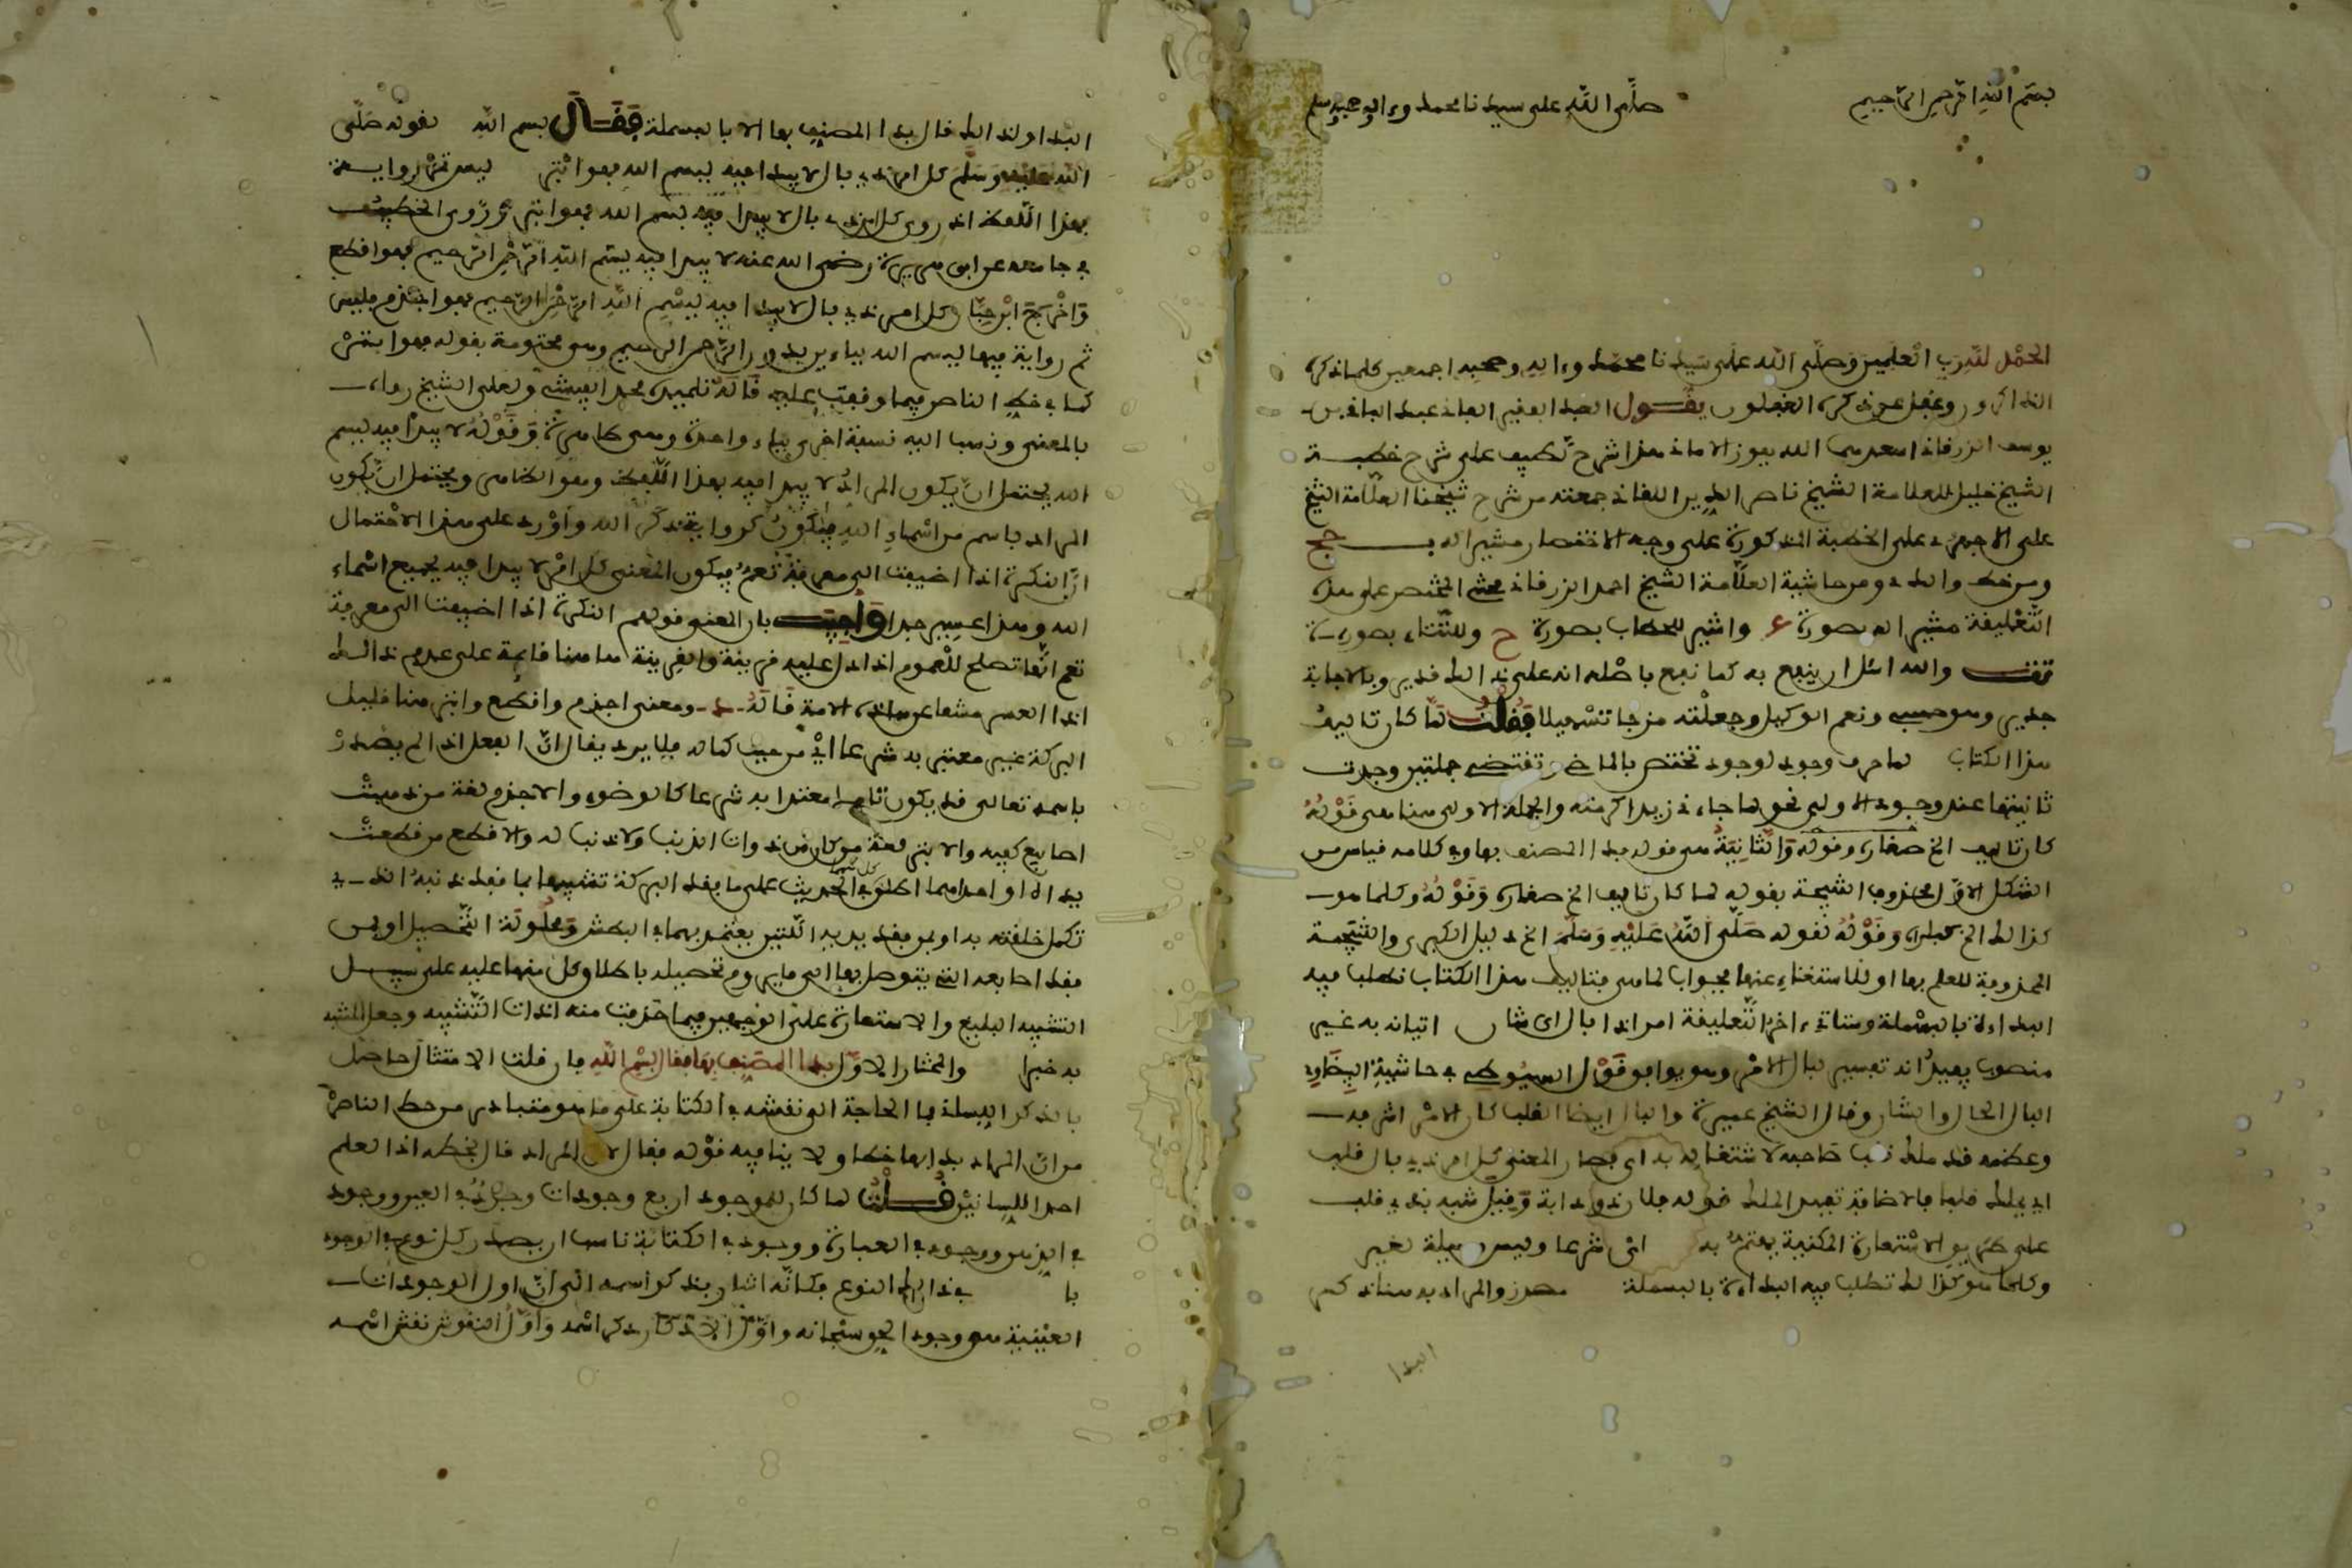 بسم الله الرحمن الرحيم صلى الله على سيدنا محمد وءاله وصحبه وسلم
الحمد لله رب العلمين وصلى الله على سيدنا محمد وءاله وصحبه اجمعين كلما ذكره
الذاكرون وغفل عن ذكره الغفلون يقول العبد الفقير الفاني عبد الباقي بن
يوسف الزرقاني اسعدهما الله بفوز الاماني هذا شرح لطيف على شرح خطبة
الشيخ خليل للعلامة الشيخ ناصر الدين اللقاني جمعته من شرح شيخنا العلامة الشيخ
على الاجهوري على الخطبة المذكورة على وجه الاختصار مشيرا له بـ عج
ومن خط والدي ومن حاشية العلامة الشيخ احمد الزرقاني محشي المختصر على هذه
التعليقة مشيرا له بصورة ء واشير للحطاب بصورة ح وللتتاءي بصورة
تت والله اسئل ان ينفع به كما نفع باصله انه على ذالك قدير وبالاجابة
جدير وهو حسبي ونعم الوكيل وجعلته مزجا تسهيلا فقلت لما كان تاليف
هذا الكتاب لما حرف وجود لوجود تختص بالماضي تقتضي جملتين وجدت
ثانيتهما عند وجود الاولى نحو لما جاءني زيد اكرمته والجملة الاولى هنا هي قوله
كان تاليف الخ صغراه وقوله والثانية هي قوله بدا المصنف بها وفي كلامه قياس من
الشكل الاول محذوف النتيجة بقوله لما كان تاليف الخ صغراه وقوله وكلما هو
كذالك الخ كبراه وقوله لقوله صلى الله عليه وسلم الخ دليل الكبرى والنتيجة
المحذوفة للعلم بها او للاستغناء عنها بجواب لما هي فتاليف هذا الكتاب تطلب فيه
البداءة بالبسملة وستاتي ءاخر التعليقة امرا ذا بال اي شان اتيانه به غير
منصوب يفيد انه تفسير لبال لا لامر وهو يوافق قول السيوطي في حاشية البيضاوي
البال الحال والشان وقال الشيخ عميرة والبال ايضا القلب كان الامر لشرفه
وعظمه قد ملك قلب صاحبه لاشتغاله به اي فصار المعنى كل امر ذي بال قلب
اي يملك قلبا فالاضافة تفيد الملك نحو له فلان ذو دابة وقيل شبه بذي قلب
على طريق الاستعارة المكنية يهتم به اي شرعا وليس وسيلة لغير
وكلما هو كذالك تطلب فيه البداءة بالبسملة مصدر والمراد به هنا ذكر
البدا
البدا ولذالك قال بدا المصنف بها الا بالبسملة فقال بسم الله لقوله صلى
الله عليه وسلم كل امر ذي بال لا يبدا فيه ببسم الله فهو ابتر ليس ثم رواية
بهذا اللفظ اذ روي كل امر ذي بال لا يبدا فيه بسم الله فهو ابتر وروى الخطيب
في جامعه عن ابي هريرة رضي الله عنه لا يبدا فيه بسم الله الرحمن الرحيم فهو اقطع
واخرج ابن حبان كل امر ذي بال لا يبدا فيه ببسم الله الرحمن الرحيم فهو اجذم فليس
ثم رواية فيها ببسم الله بباءين بدون الرحمن الرحيم وهي مختومة بقوله فهو ابتر
كما في خط الناصر فيما وقفت عليه قاله تلميذه محمد الفيشي ولعل الشيخ رواه
بالمعنى وذهب اليه نسخة اخرى بباء واحدة وهي ظاهرة وقوله لا يبدا فيه بسم
الله يحتمل ان يكون المراد لا يبدا فيه بهذا اللفظ وهو الظاهر ويحتمل ان يكون
المراد باسم من اسماء الله وأورد على هذا الاحتمال
ان النكرة اذا اضيفت الى معرفة تعم فيكون المعنى كل امر لا يبدا فيه بجميع اسماء
الله وهذا عسير جدا واجيب بان المعنى قولهم النكرة اذا اضيفت الى معرفة
تعم انها تصلح للعموم اذا دل عليه قرينة والقرينة هاهنا قائمة على عدم ذالك
ومعنى اجذم واقطع وابتر هنا قليل
البركة غير معتنى به شرعا اي من حيث كماله فلا يرد يقال ان الفعل اذا لم يصدر
باسمه تعالى قد يكون تاما معتدا به شرعا كالوضوء والاجذم لغة من ذهبت
اصابع كفيه والابتر لغة من كان من ذوات الذنب ولا ذنب له والاقطع من قطعت
يداه او احداهما اطلق في الحديث على ما فقد البركة تشبيها بما فقد ذنبه الذي
تكمل خلقته به او بمن فقد يديه اللتين يعتمد بهما في البطش ومحاولة التحصيل او بمن
فقد اصابعه التي يتوصل بها الى ما يروم تحصيله باطلاق كل منها عليه على سبيل
التشبيه البليغ والاستعارة على الوجهين فيما حذفت منه اداة التشبيه وجعل المشبه
به خبرا والمختار الاول بدا المصنف بها فقال بسم الله فان قلت الامتثال حاصل
بالذكر البسملة فما الحاجة الى نقشه في الكتابة على ما هو متبادر من خط الناصر
من ان المراد بدا بها خطا ولا ينافيه قوله فقال لان المراد قال بخطه اذ القلم
احد اللسانين قلت لما كان للموجود اربع وجودات وجود في العين ووجود
في الذهن ووجود في العبارة ووجود في الكتابة ناسب ان يصدر كل نوع في الوجود
با في ذالك النوع فكانه اشار بذكر اسمه الى ان اول الوجودات
العينية هي وجود الحق سبحانه واول الاذكار ذكر اسمه واول النقوش نقش اسمه